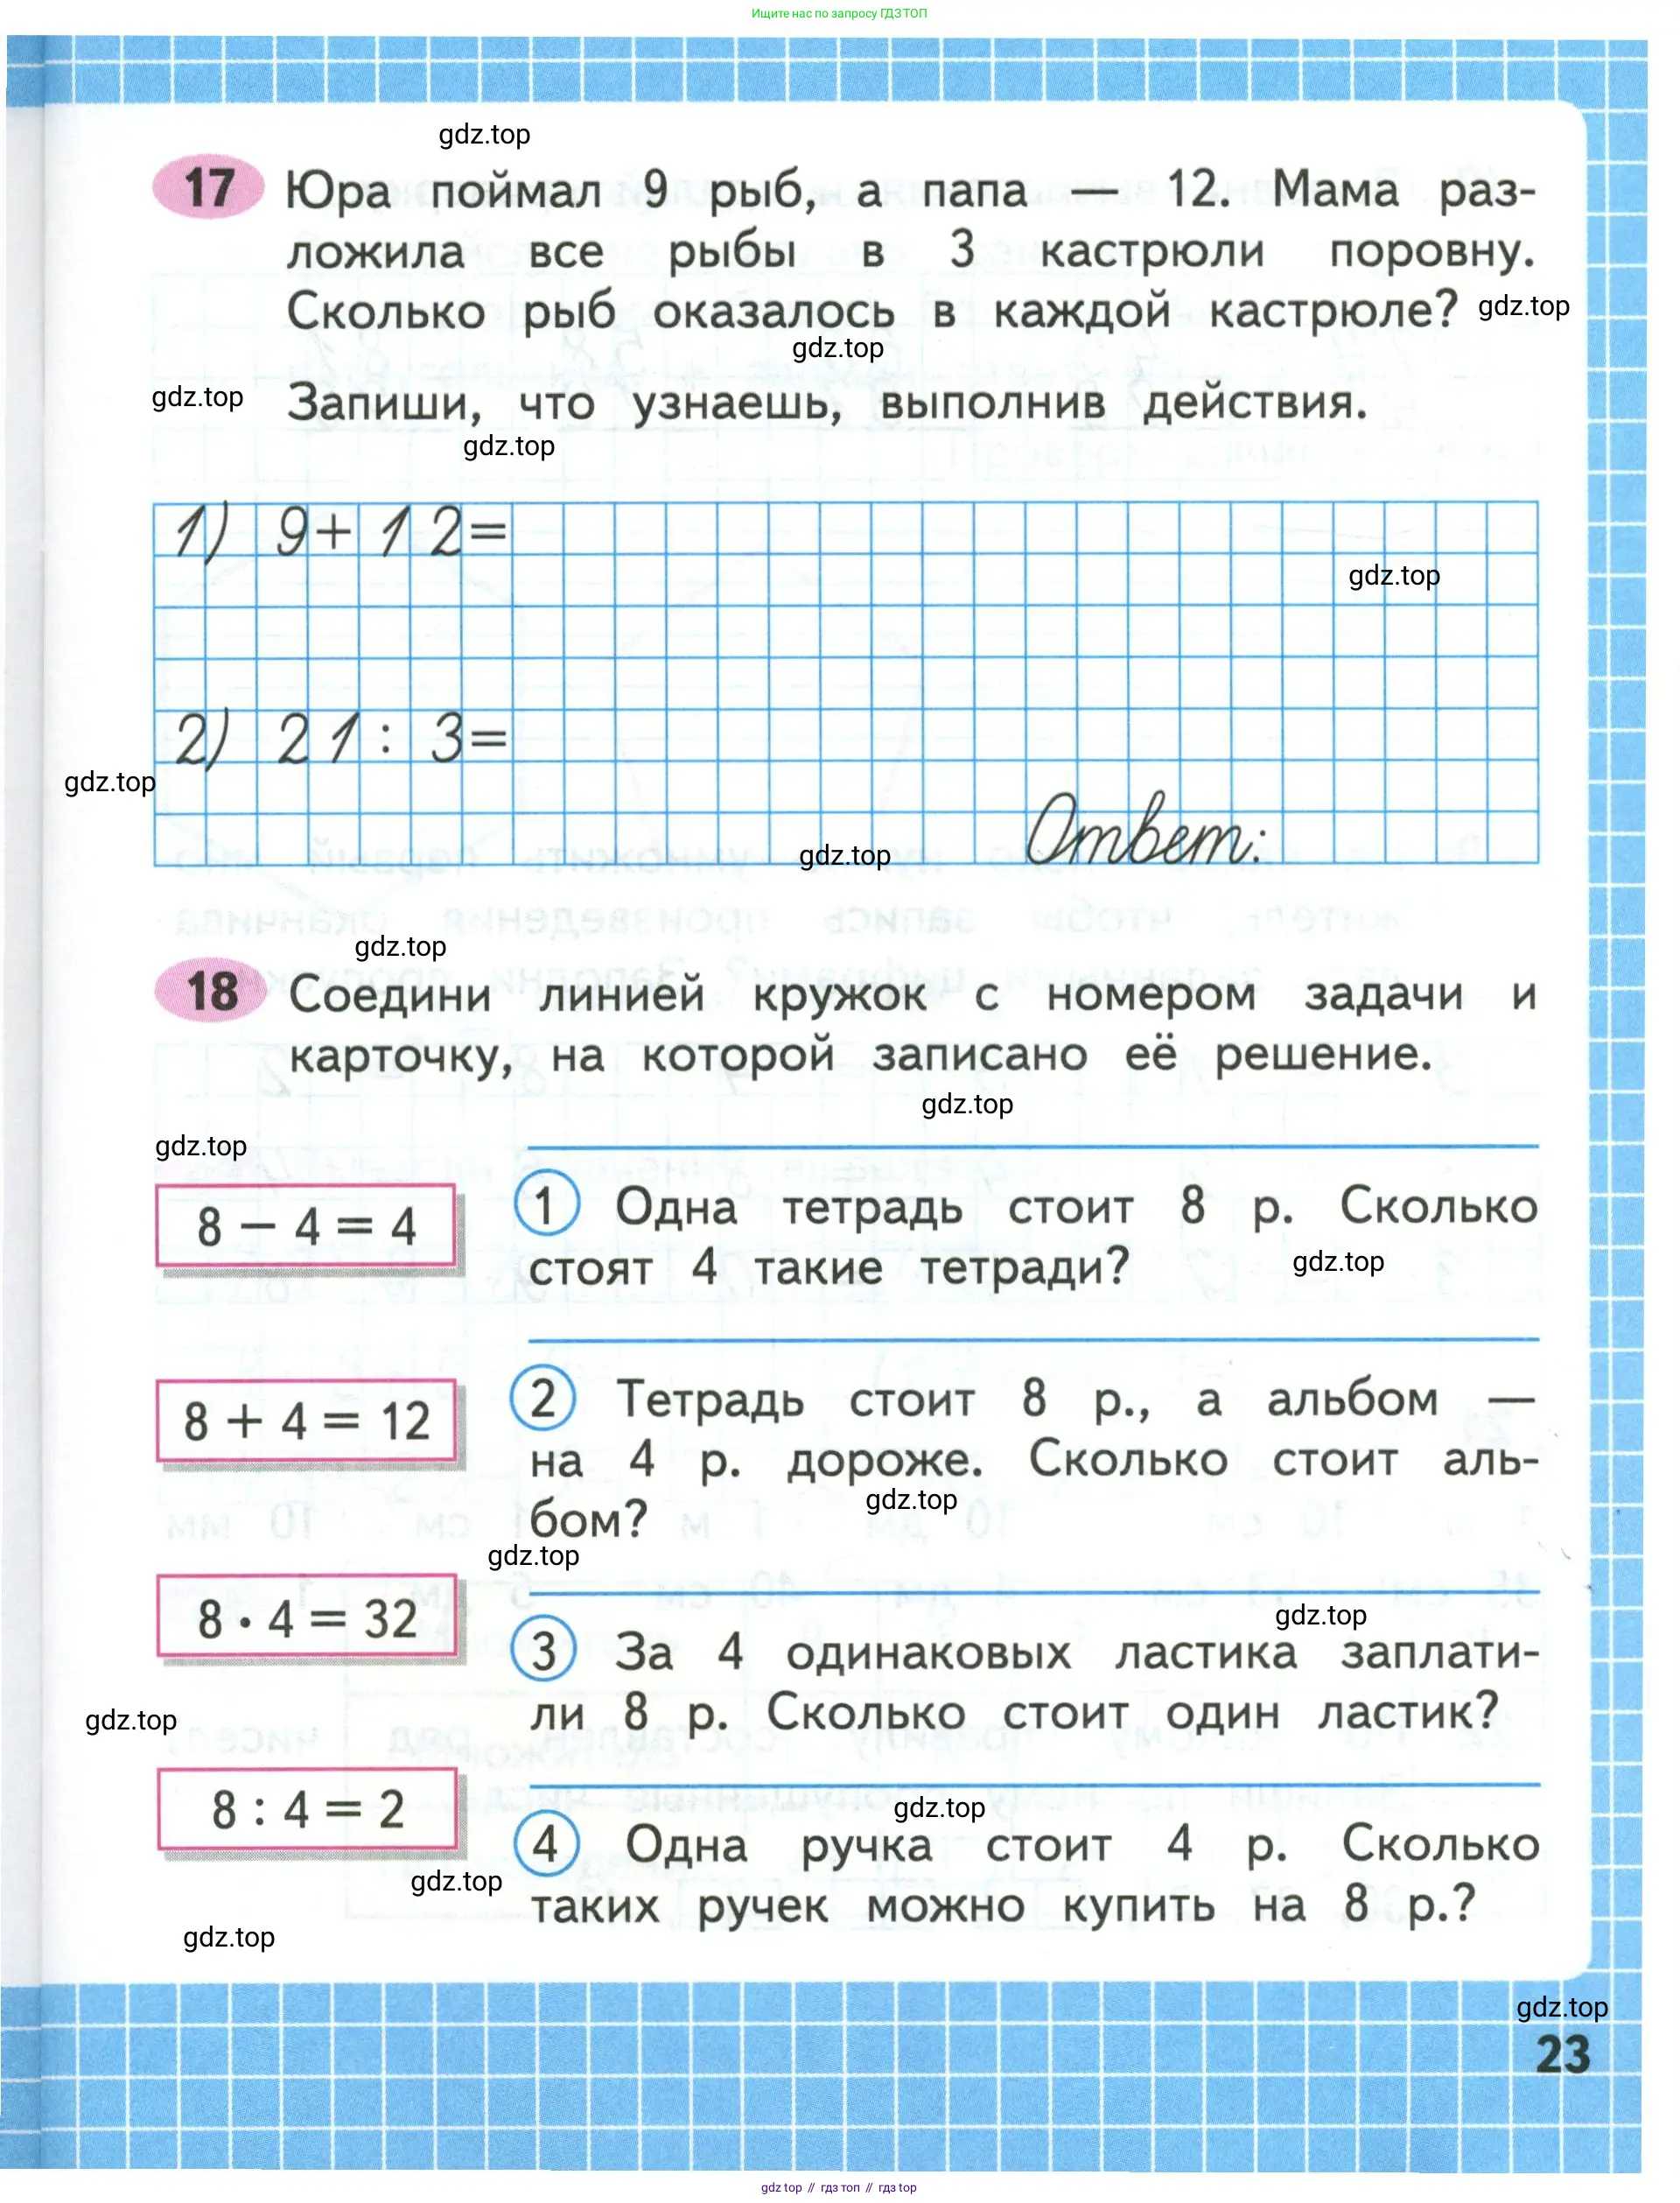 Ищите нас по запросу ГДЗ ТОП
gdz.top
17 Юра поймал 9 рыб, а папа — 12. Мама раз-
ложила все рыбы в 3 кастрюли поровну.
Сколько рыб оказалось в каждой кастрюле? gdz.top
gdz.top
gdz.top Запиши, что узнаешь, выполнив действия.
gdz.top
1) 9+12=
gdz.top
2) 21:3=
gdz.top
Ответ:
gdz.top
gdz.top
18 Соедини линией кружок с номером задачи и
карточку, на которой записано её решение.
gdz.top
gdz.top
8 − 4 = 4
1 Одна тетрадь стоит 8 р. Сколько
стоят 4 такие тетради? gdz.top
8 + 4 = 12
2 Тетрадь стоит 8 р., а альбом —
на 4 р. дороже. Сколько стоит аль-
бом? gdz.top
gdz.top
8 · 4 = 32
gdz.top
3 За 4 одинаковых ластика заплати-
ли 8 р. Сколько стоит один ластик?
gdz.top
8 : 4 = 2
gdz.top
4 Одна ручка стоит 4 р. Сколько
таких ручек можно купить на 8 р.?
gdz.top
gdz.top
gdz.top
23
gdz top // гдз топ // гдз top